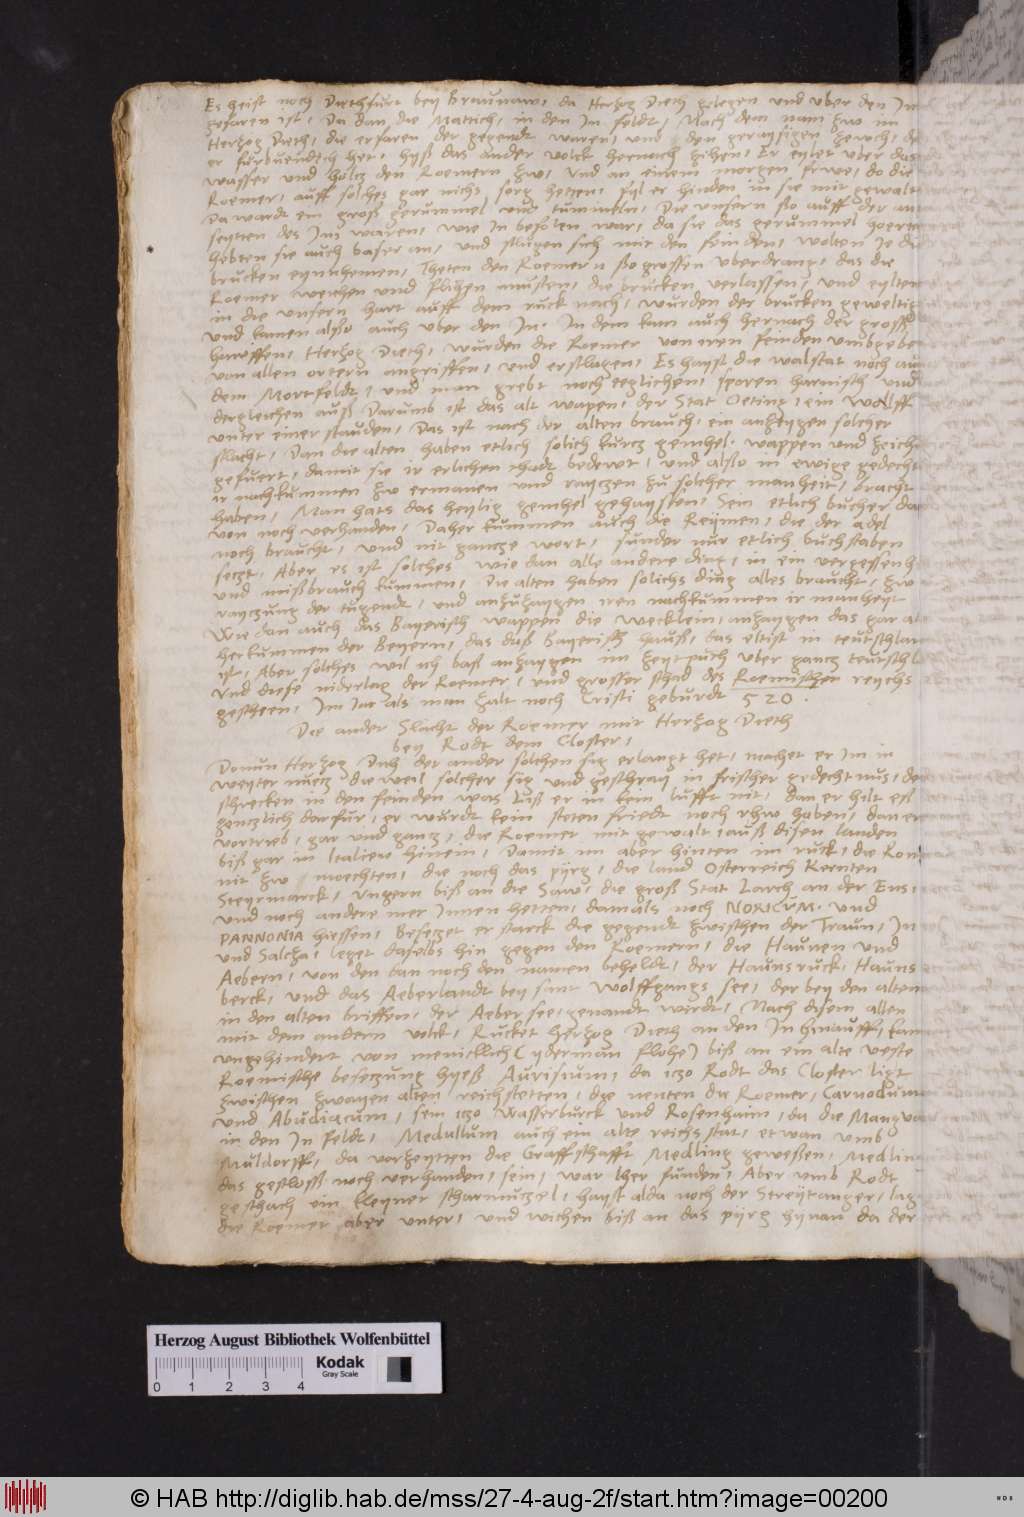 Es heist noch Diethfurt bey Braunaw, da Herzog Diech gelegen und uber den In
gefaren ist, Da dan die Mattich, in den In feldt, Nach dem nam zw im
Hertzog Dieth, die erfaren der gegendt waren, und den geraysigen zewch, de
er fürbuendtch het, hyß das ander volck hernach zihen, Er eylet uber das
wasser und holtz den Roemern zw, Und an einem morgen frwe, do die
Roemer, auff solches gar nichs sorg hetten, fyl er hinden in sie mit gewalt
Da wardt ein groß gerummel und tummeln, Die unsern so auff der an
seytten des Ins waren, wie in befolen war, da sie das gerummel hoerte
hebten sie auch baser an, und slugen sich mit den feinden, wolten Je die
brucken eynnhemen, Theten den Roemern so grossen uberdrang, das die
Roemer weichen und flihen musten, die brucken verlassen, und eylten
in die unsern hart auff dem ruck nach, wurden der brucken geweltig
und kamen also auch uber den In. In dem kam auch hernach der gross
hawffen, Hertzog Diech, wurden die Roemer von iren feinden umbgeben
von allen ortern angriffen, und erslagen, Es hayst die walstat noch auf
dem Mortfeldt, und man grebt noch teglichen, sporen harnisch und
dergleichen auß Darumb ist das alt wapen, der Stat Oeting, ein Wolff
unter einer stauden, Das ist nach der alten brauch, ein anzeygen solcher
slacht, Dan die alten haben etlich solich kurcz gemhel, wappen und zeich
gefuert, damit sie ir erlichen thadt bedewt, und also in ewige gedecht
ir nachkummen zw ermanen und rayczen zu solcher manheit, bracht
haben, Man hats das heylig gemhel gehayssen, Sein etlich bucher da
von noch verhanden, Daher kummen auch die Reymen, die der adel
noch braucht, und nit gancze wort, sunder nur etlich buchstaben
seczt, Aber es ist solches wie dan alle andere ding, in ein vergessenh
und mißbrauch kummen, Die alten haben solichs ding alles braucht, zw
rayczung der tugendt, und anzuzaygen iren nachkummen ir manheyt
Wie dan auch das Bayerisch wappen die wecklein, anzaygen das gar al
herkummen der Beyern, das das Bayerisch hauß, das eltist in teutschlan
ist, Aber solches wil ich baß anzaygen im zeytpuch uber gancz teutschl
Und diese niderlag der Roemer, und grosser schad des Roemischen reychs
gescheen, Im Jar als man zalt noch Cristi geburdt 520.
Die ander Slacht der Roemer mit Hertzog Dieth
bey Rodt dem Closter,
Do nun Hertzog Dieth der ander solchen sig erlangt het, machet er im in
weyter nuecz die weil solcher sig und geschray in frischer gedechtnus, de
schrecken in den feinden was Ließ er in kein lufft nit, dan er hilt est
genczlich darfur, er wurdt kein steten friedt noch rhw haben, dan er
vortrieb, gar und gancz, die Roemer mit gewalt auß disen landen
biß gar in Italien hinein, Damit im aber hinten im ruck, die Rom
nit zw moechten, die noch das pyrg, die land Osterreich Kernten
Steyrmarck, Ungern biß an die Saw, die groß Stat Larch an der Ens,
und noch andere mer Innen hetten, damals noch NORICUM, und
PANNONIA hiessen, Beseczet er starck die gegendt zwischen der Traun, In
und Salcza, leget daselbs hin gegen den Roemern, die Haunen und
Aebern, von den dan noch den namen beheldt, der Haunsruck, Hauns
berck, und das Aeberlandt bey sant Wolffgangs see, der bey den alten
in den alten briffen, der Aebersee, genandt wirdt, Nach disem allen
mit dem andern volck, Rucket hertzog Dieth an den In hinauff, kam
ungehindert von menicklich (yderman flohe) biß an ein alte veste
Roemische beseczung hyeß Aurisium, da iczo Rodt das Closter ligt
zwischen zwayen alten reichstetten, dye nenten die Roemer, Carnodunum
und Abudiacum, sein iczo Wasserburck und Rosenhaim, da die Mangva
in den In feldt, Medullum auch ein alte reichsstat, etwan umb
Muldorff, da vorzeytten die Graffschafft Medling geweßen, Medlin
das geschloß noch verhanden, sein, war her funden, Aber umb Rodt
geschach ein kleyner scharmuczel, hayst alda noch der Streytanger, lag
die Roemer aber unter, und wichen biß an das pyrg hynan da der
Herzog August Bibliothek Wolfenbüttel
Kodak
Gray Scale
0 1 2 3 4
© HAB http://diglib.hab.de/mss/27-4-aug-2f/start.htm?image=00200